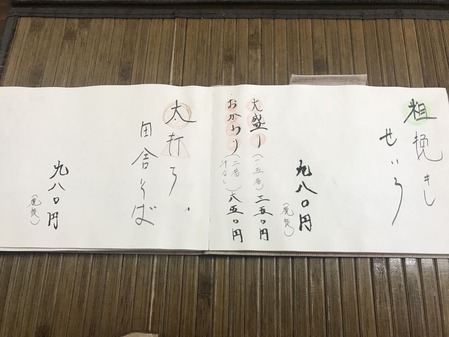 粗挽き
せいろ
九八〇円
大盛り（一、五倍）三五〇円
おかわり（二番 汁なし）六五〇円
太打ち
田舎そば
九八〇円